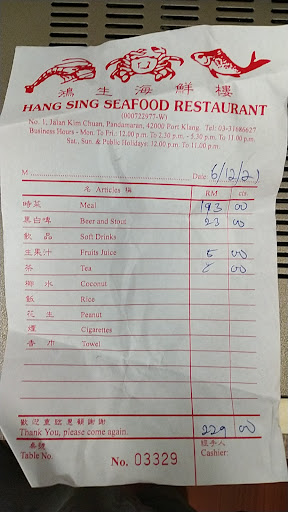 鴻生海鮮樓
HANG SING SEAFOOD RESTAURANT
(000722977-W)
No. 1, Jalan Kim Chuan, Pandamaran, 42000 Port Klang. Tel: 03-31686627
Business Hours - Mon. To Fri.: 12.00 p.m. To 2.30 p.m. - 5.30 p.m. To 11.00 p.m.
Sat., Sun. & Public Holidays: 12.00 p.m. To 11.00 p.m.
M Date: 6/12/21
名 Articles 稱 RM cts.
時菜 Meal 193 00
黑白啤 Beer and Stout 23 00
飲品 Soft Drinks
生果汁 Fruits Juice 5 00
茶 Tea 8 00
椰水 Coconut
飯 Rice
花生 Peanut
煙 Cigarettes
香巾 Towel
歡迎重臨惠顧謝謝
Thank You, please come again. 229 00
桌號 經手人
Table No. No. 03329 Cashier: